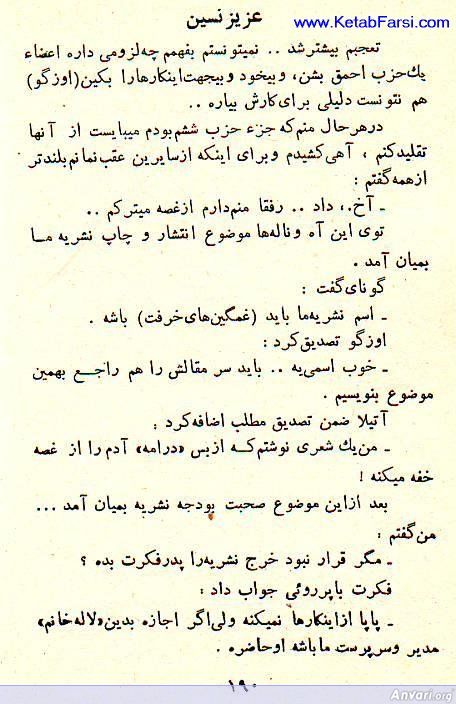 www.KetabFarsi.com
عزیز نسین
تعجبم بیشتر شد .. نمیتونستم بفهمم چه لزومی داره اعضاء
یك حزب احمق بشن، وبیخود وبیجهت اینکارها را بکین (اوزگو)
هم نتونست دلیلی برای کارش بیاره ..
در هر حال منم که جزء حزب ششم بودم میبایست از آنها
تقلید کنم ، آهی کشیدم و برای اینکه از سایرین عقب نمانم بلندتر
از همه گفتم :
ـ آخ.، داد .. رفقا منم دارم از غصه میترکم ..
توی این آه و ناله‌ها موضوع انتشار و چاپ نشریه مـا
بمیان آمد .
گونای گفت :
ـ اسم نشریه ما باید (غمگین‌های خرفت) باشه .
اوزگو تصدیق کرد :
ـ خوب اسمی‌یه .. باید سر مقالش را هم راجـع بهمین
موضوع بنویسیم .
آتیلا ضمن تصدیق مطلب اضافه کرد :
ـ من یك شعری نوشتم کـه از بس «درامه» آدم را از غصه
خفه میکنه !
بعد از این موضوع صحبت بودجه نشریه بمیان آمد ...
من گفتم :
ـ مگر قرار نبود خرج نشریه را پدر فکرت بده ؟
فکرت با پرروئی جواب داد :
ـ پاپا از اینکارها نمیکنه ولی اگر اجازه بدین «لاله خانم»
مدیر وسرپرست ما باشه او حاضره .
۱۹۰
Anvari.org